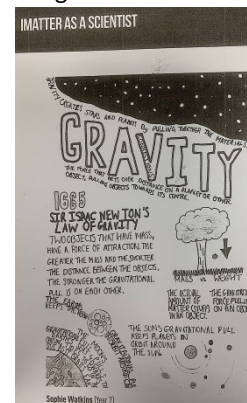 IMATTER AS A SCIENTIST
GRAVITY CREATES STARS AND PLANETS BY PULLING TOGETHER THE MATERIALS
GRAVITY
THE FORCE THAT ACTS OVER DISTANCE ON A PLANET OR OTHER
OBJECT, PULLING OBJECTS TOWARDS ITS CENTRE.
1665
SIR ISAAC NEWTON'S
LAW OF GRAVITY
TWO OBJECTS THAT HAVE MASS,
HAVE A FORCE OF ATTRACTION. THE
GREATER THE MASS AND THE SHORTER
THE DISTANCE BETWEEN THE OBJECTS,
THE STRONGER THE GRAVITATIONAL
PULL IS ON EACH OTHER.
MASS vs WEIGHT
THE ACTUAL
AMOUNT OF
MATTER (STUFF)
IN AN OBJECT.
THE GRAVITATI
FORCE PULLI
ON AN OBJ
THE SUN'S GRAVITATIONAL PULL
KEEPS PLANETS IN
ORBIT AROUND
THE SUN.
Sophie Watkins (Year 7)